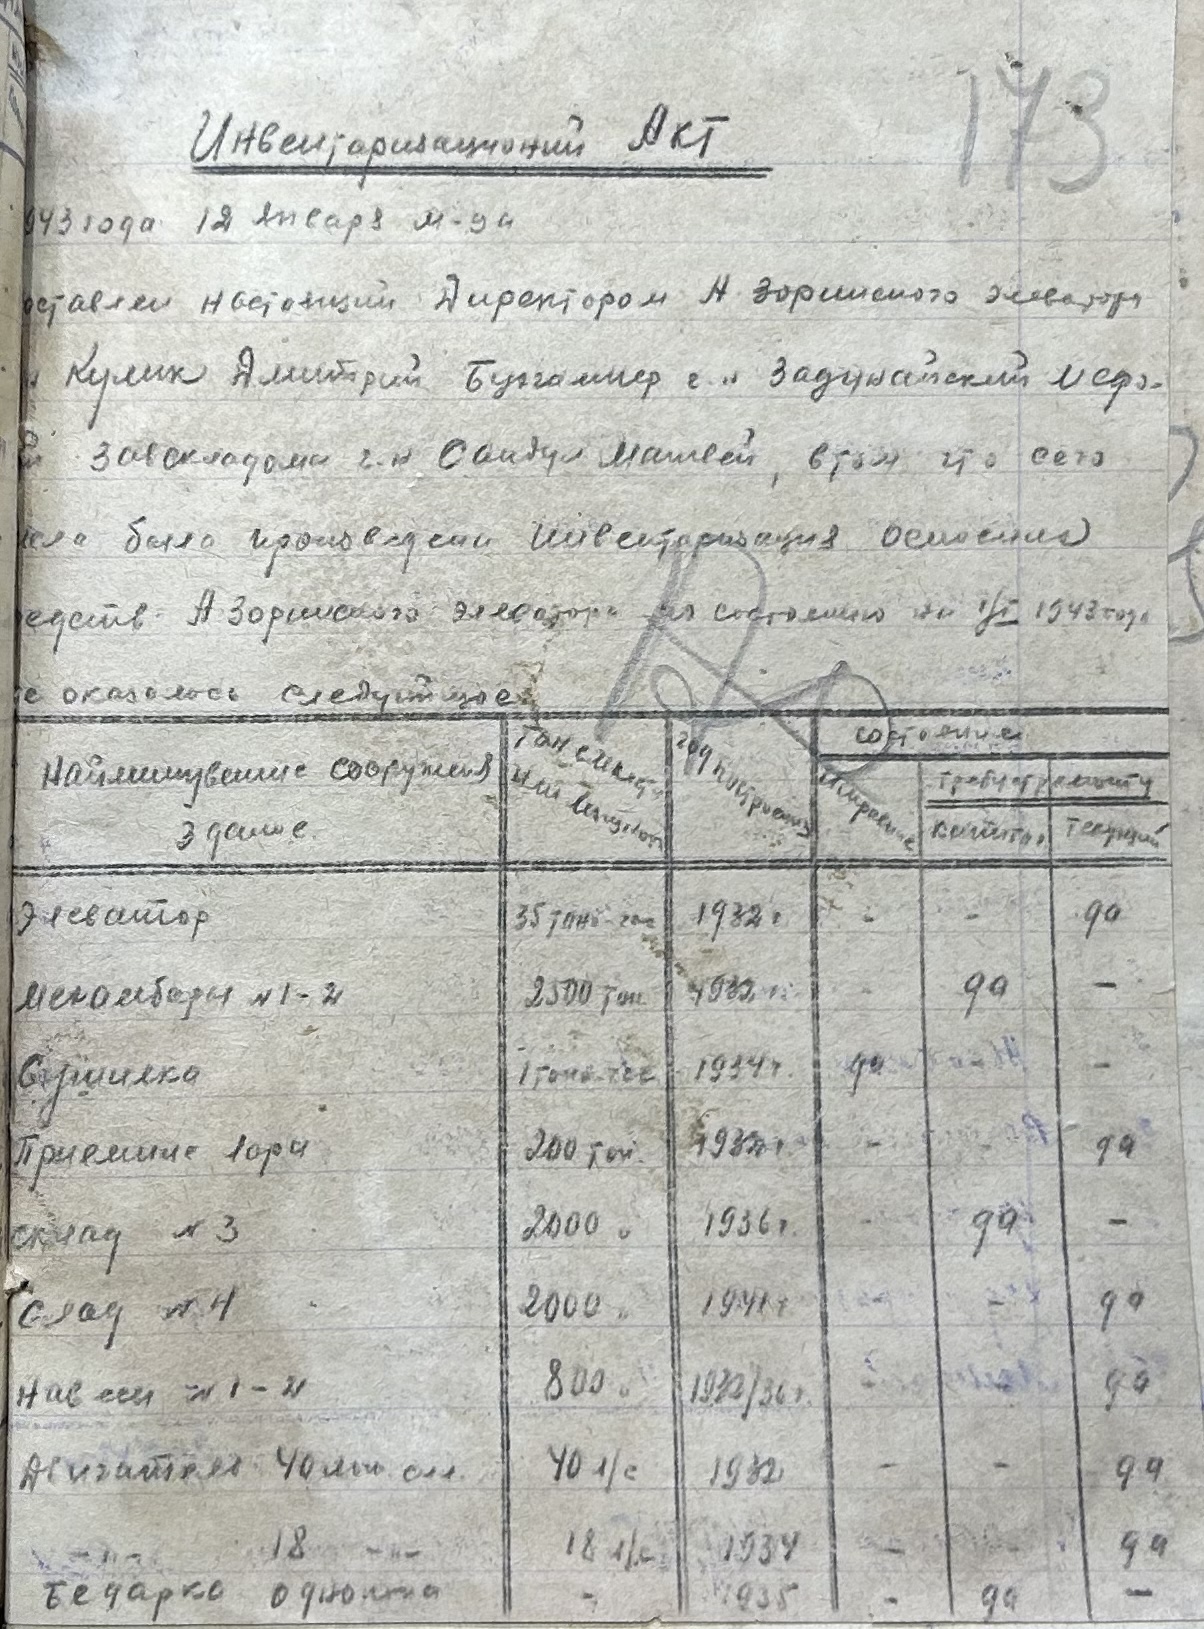 173
Инвентаризационий Акт
943 года 12 Января м-ца
оставлен настоящий Директором А Зоринского элеватора
Кулик Дмитрий Бухгалтер г-н Задунайский
Завскладома г-н Сандул Матвей, в том что сего
была произведени Инвентаризация Основных
едств А Зоринского Элеватора по состоянию на 1/I 1943 года
е оказалось следующее
Наименувание сооружения здание.
год построения
состояние
Исправное
требует ремонту
капитал.
текущий
Элеватор 35 тонн-час 1932 г - - да
Мехамбары №1-2 2500 тон 1932 г. - да -
Сушилка 1 тонн-час 1934 г. да -
Приемние 200 тон. 1932 г. - - да
склад №3 2000 " 1936 г. - да -
Слад №4 2000 " 1941 г - да
Навеси №1-2 800 " 1932/36 г. - - да
Двигатель 40 лош сил. 40 л/с 1932 - - да
-"- 18 -"- 18 л/с 1934 - - да
Бедарка одноконна - 1935 - да -